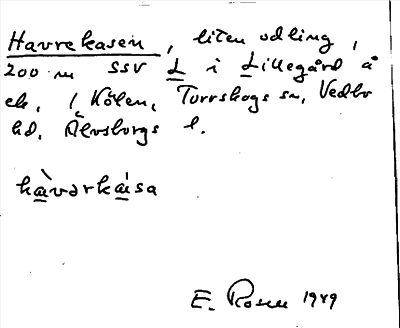 Havrekasen, liten odling,
200 m SSV L i Lillegård å
ek. / Kölen, Torrskogs sn, Vedbo
hd, Älvsborgs l.
hàvərká̱sa
E. Rosell 1949